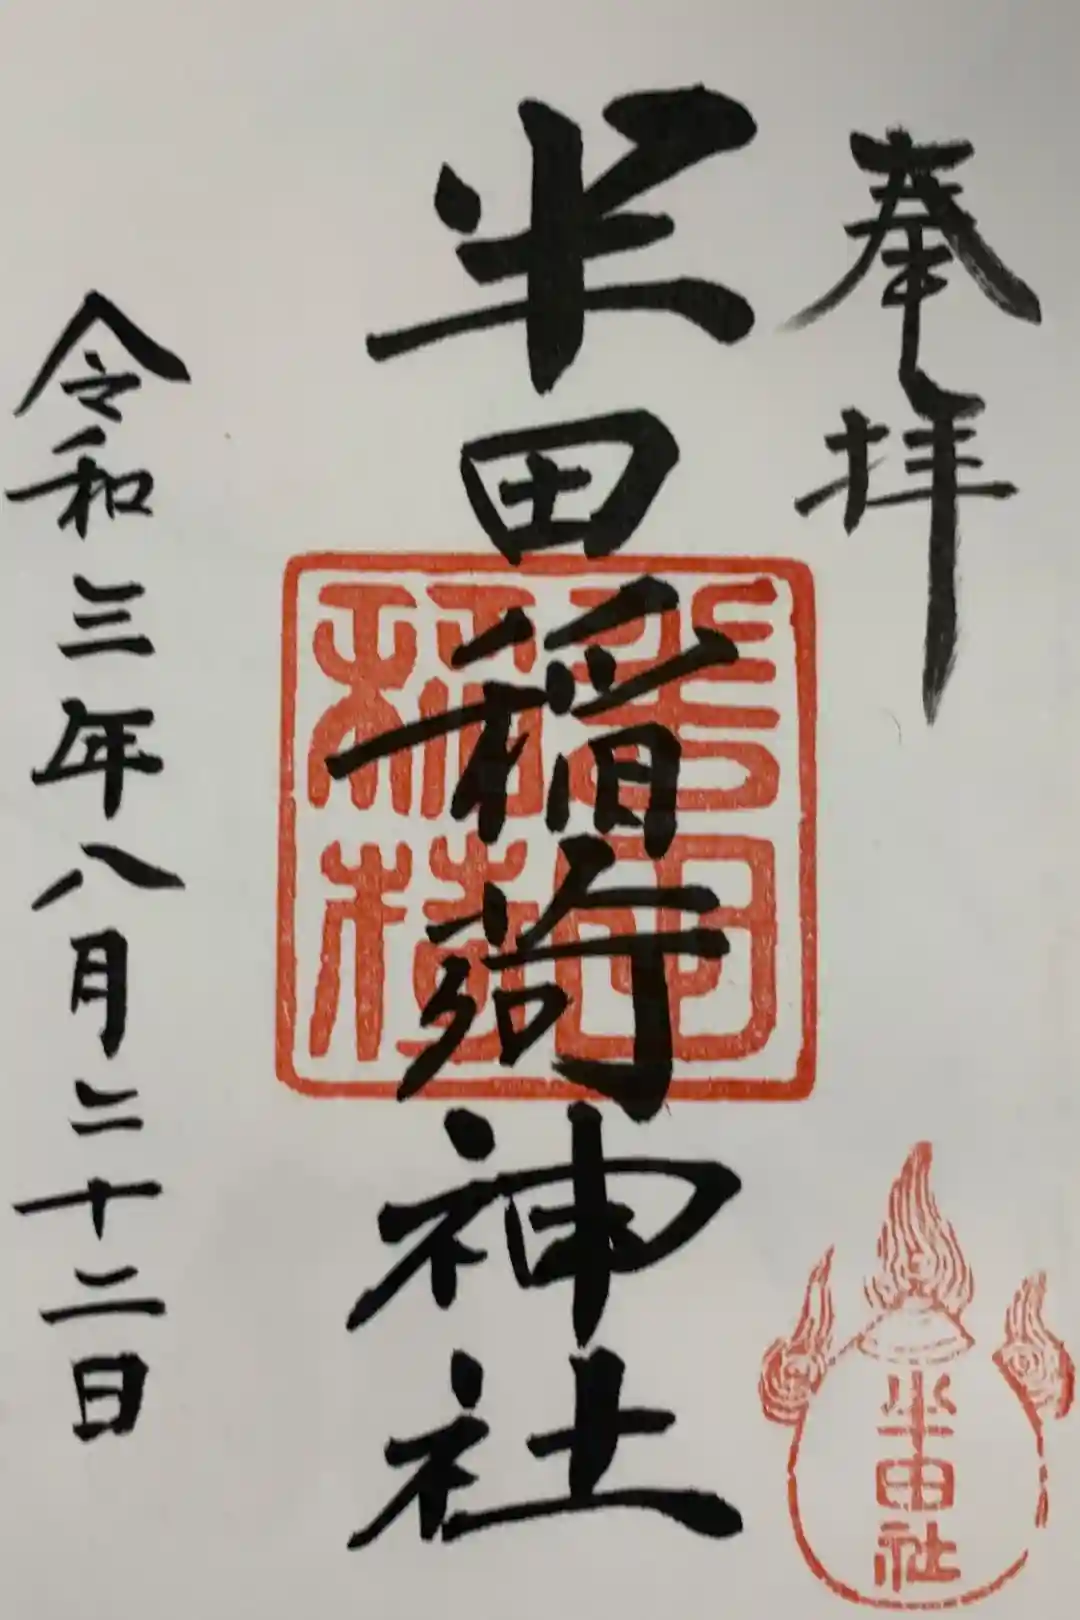 奉拝
半田稲荷神社
令和三年八月二十二日
半田稲荷
半田社